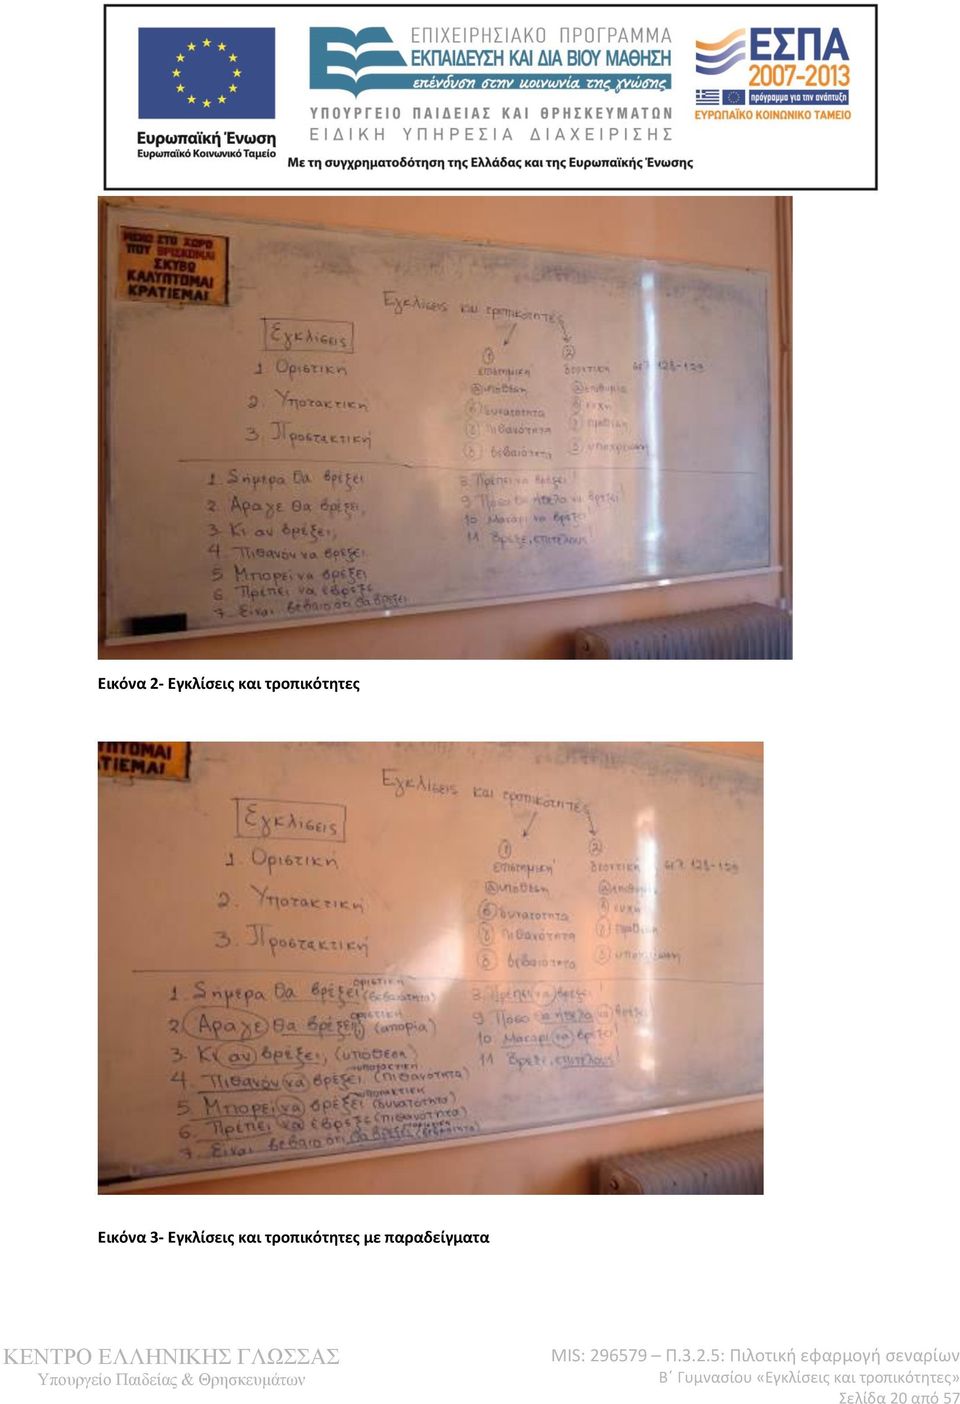 ΕΠΙΧΕΙΡΗΣΙΑΚΟ ΠΡΟΓΡΑΜΜΑ
ΕΚΠΑΙΔΕΥΣΗ ΚΑΙ ΔΙΑ ΒΙΟΥ ΜΑΘΗΣΗ
επένδυση στην κοινωνία της γνώσης
ΥΠΟΥΡΓΕΙΟ ΠΑΙΔΕΙΑΣ ΚΑΙ ΘΡΗΣΚΕΥΜΑΤΩΝ
ΕΙΔΙΚΗ ΥΠΗΡΕΣΙΑ ΔΙΑΧΕΙΡΙΣΗΣ
Ευρωπαϊκή Ένωση
Ευρωπαϊκό Κοινωνικό Ταμείο
ΕΣΠΑ
2007-2013
πρόγραμμα για την ανάπτυξη
ΕΥΡΩΠΑΪΚΟ ΚΟΙΝΩΝΙΚΟ ΤΑΜΕΙΟ
Με τη συγχρηματοδότηση της Ελλάδας και της Ευρωπαϊκής Ένωσης
ΜΕΝΩ ΣΤΟ ΧΩΡΟ
ΠΟΥ ΒΡΙΣΚΟΜΑΙ
ΣΚΥΒΩ
ΚΑΛΥΠΤΟΜΑΙ
ΚΡΑΤΙΕΜΑΙ
Εγκλίσεις και τροπικότητες
Εγκλίσεις
1. Οριστική
2. Υποτακτική
3. Προστακτική
① επιστημική
α υπόθεση
β δυνατότητα
γ πιθανότητα
δ βεβαιότητα
② δεοντική σελ 128-129
α επιθυμία
β ευχή
γ πρόθεση
δ υποχρέωση
1. Σήμερα θα βρέξει
2. Άραγε θα βρέξει;
3. Κι αν βρέξει;
4. Πιθανόν να βρέξει
5. Μπορεί να βρέξει
6. Πρέπει να έβρεξε
7. Είναι βέβαιο ότι θα βρέξει
8. Πρέπει να βρέξει!
9. Πόσο θα ήθελα να βρέξει!
10. Μακάρι να βρέξει!
11. Βρέξε, επιτέλους!
Εικόνα 2- Εγκλίσεις και τροπικότητες
ΥΠΤΟΜΑΙ
ΑΤΙΕΜΑΙ
Εγκλίσεις και τροπικότητες
Εγκλίσεις
1. Οριστική
2. Υποτακτική
3. Προστακτική
① επιστημική
α υπόθεση
β δυνατότητα
γ πιθανότητα
δ βεβαιότητα
② δεοντική σελ 128-129
α επιθυμία
β ευχή
γ πρόθεση
δ υποχρέωση
1. Σήμερα θα βρέξει οριστική (βεβαιότητα)
2. Άραγε θα βρέξει; οριστική (απορία)
3. Κι αν βρέξει; (υπόθεση)
4. Πιθανόν να βρέξει υποτακτική (πιθανότητα)
5. Μπορεί να βρέξει υποτακτική (δυνατότητα)
6. Πρέπει να έβρεξε (πιθανότητα)
7. Είναι βέβαιο ότι θα βρέξει οριστική (βεβαιότητα)
8. Πρέπει να βρέξει!
9. Πόσο θα ήθελα να βρέξει!
10. Μακάρι να βρέξει!
11. Βρέξε, επιτέλους!
Εικόνα 3- Εγκλίσεις και τροπικότητες με παραδείγματα
ΚΕΝΤΡΟ ΕΛΛΗΝΙΚΗΣ ΓΛΩΣΣΑΣ
Υπουργείο Παιδείας & Θρησκευμάτων
MIS: 296579 – Π.3.2.5: Πιλοτική εφαρμογή σεναρίων
Β΄ Γυμνασίου «Εγκλίσεις και τροπικότητες»
Σελίδα 20 από 57